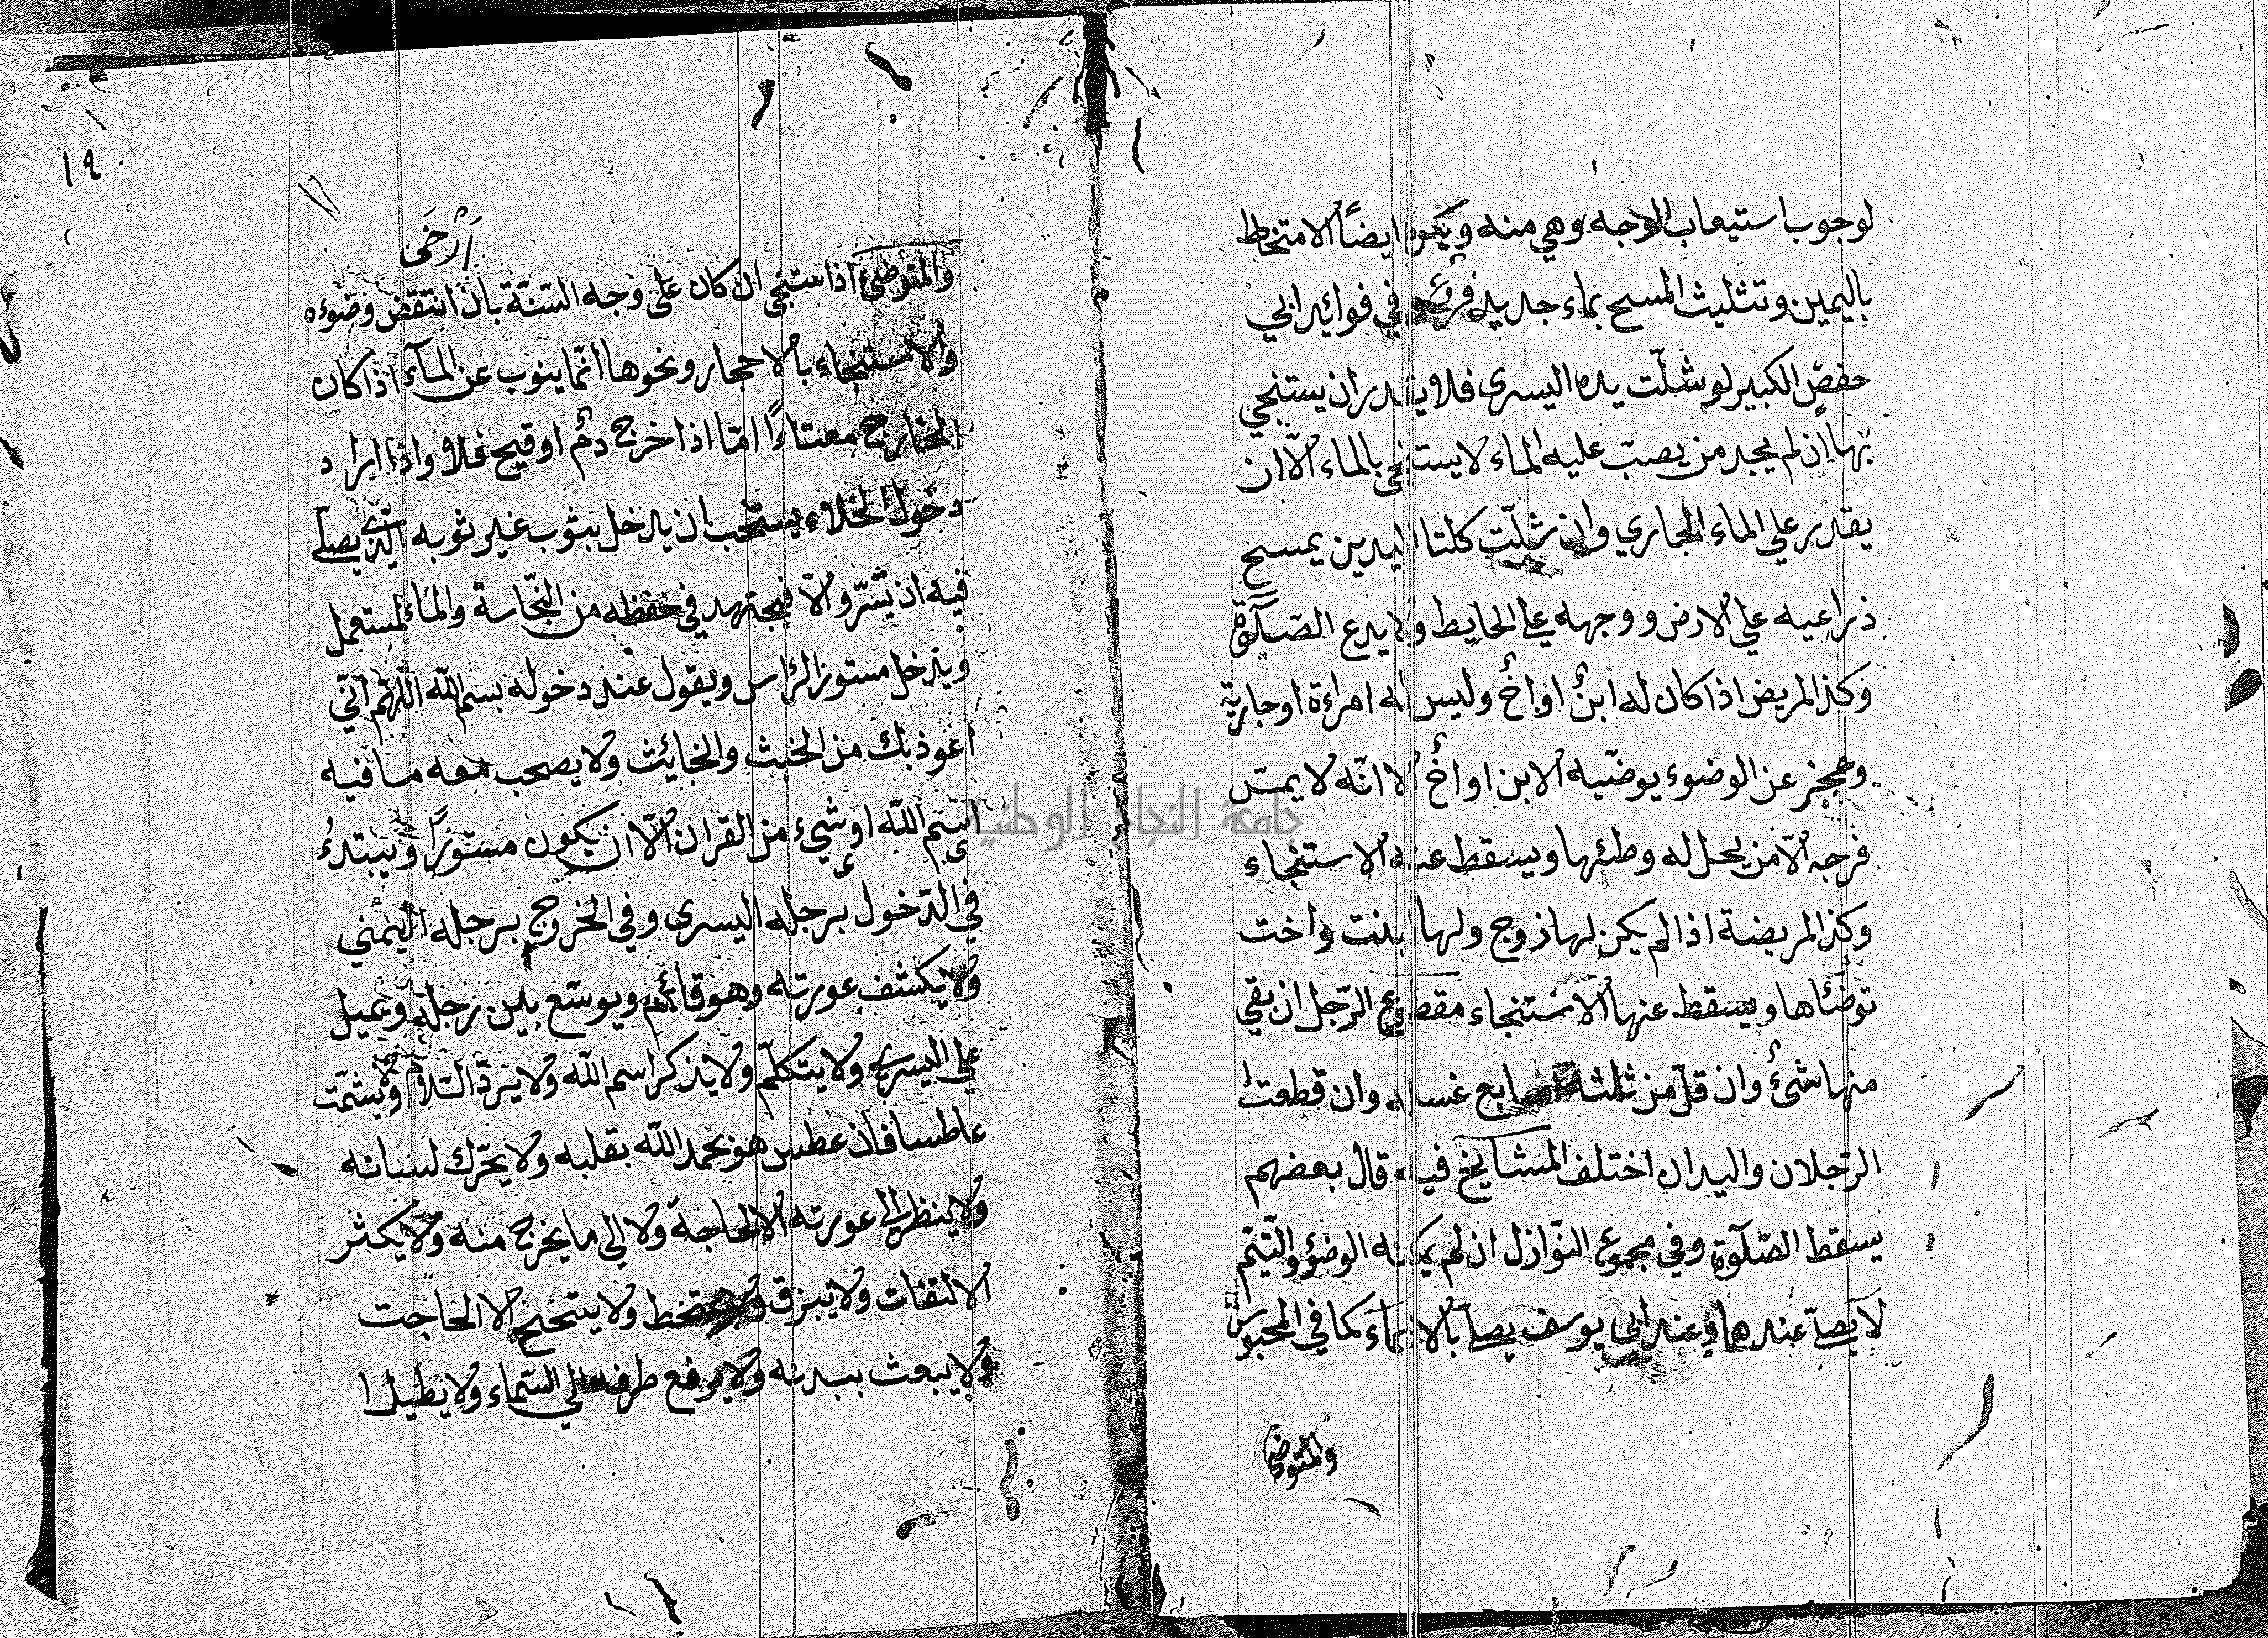 لوجوب استيعاب الوجه وهي منه ويكره ايضاً الامتخاط
باليمين وتثليث المسح بماء جديد فروع في فوائد ابي
حفص الكبير لو شلّت يده اليسرى فلا يقدر ان يستنجي
بها ان لم يجد من يصبّ عليه الماء لا يستنجى بالماء الّا ان
يقدر علي الماء الجاري وان شلّت كلتا اليدين يمسح
ذراعيه علي الارض و وجهه علي الحايط ولا يدع الصّلوة
وكذ المريض اذا كان له ابنٌ او اخٌ وليس له امراءة او جارية
وعجز عن الوضوء يوضّيه الابن او اخٌ الا انّه لا يمسّ
فرجه الّا من يحل له وطئها ويسقط عنه الاستنجاء
وكذ المريضة اذا لم يكن لها زوج ولها بنت واخت
توضّاها ويسقط عنها الاستنجاء مقطوع الرّجل ان بقي
منها شئٌ وان قلّ من ثلثة اصابع غسله وان قطعت
الرّجلان واليدان اختلف المشايخ فيه قال بعضهم
يسقط الصّلوة وفي مجموع النّوازل ان لم يمكنه الوضؤ والتّيمّم
لا يصلّي عندهما وعند ابي يوسف يصلّي بالايماء كما في المحبوس
والمتوضئ
١٩
اَرْخَى
والمتوضئ اذا ستنجى ان كان على وجه السّنّة بان انتقض وضوءه
والاستنجاء بالاحجار ونحوها انّما ينوب عن المآء اذا كان
الخارج معتاداً امّا اذا خرج دمٌ او قيح فلا واذا اراد
دخول الخلاء يستحب ان يدخل بثوب غير ثوبه الّذي يصلّي
فيه ان تيسّر والّا فيجتهد في حفظه من النّجاسة والماء المستعمل
ويدخل مستور الرّاس ويقول عند دخوله بسم الله اللّهمّ انّي
اعوذ بك من الخبث والخبايث ولا يصحب معه ما فيه
اسم الله او شيء من القران الّا ان يكون مستوراً ويبتدئُ
في الدّخول برجله اليسرى وفي الخروج برجله اليمني
ولا يكشف عورته وهو قائم ويوسّع بين رجليه ويميل
على اليسرى ولا يتكلّم ولا يذكر اسم الله ولا يردّ السّلام ولا يشمّت
عاطسا فان عطس هو يحمد الله بقلبه ولا يحرّك لسانه
ولا ينظر الي عورته الا لحاجة ولا الي ما يخرج منه ولا يكثر
الالتفات ولا يبزق ولا يمتخط ولا يتنحنح الا لحاجت
ولا يبعث ببدنه ولا يرفع طرفه الي السّماء ولا يطيل ا
جامعة النجاح الوطنية